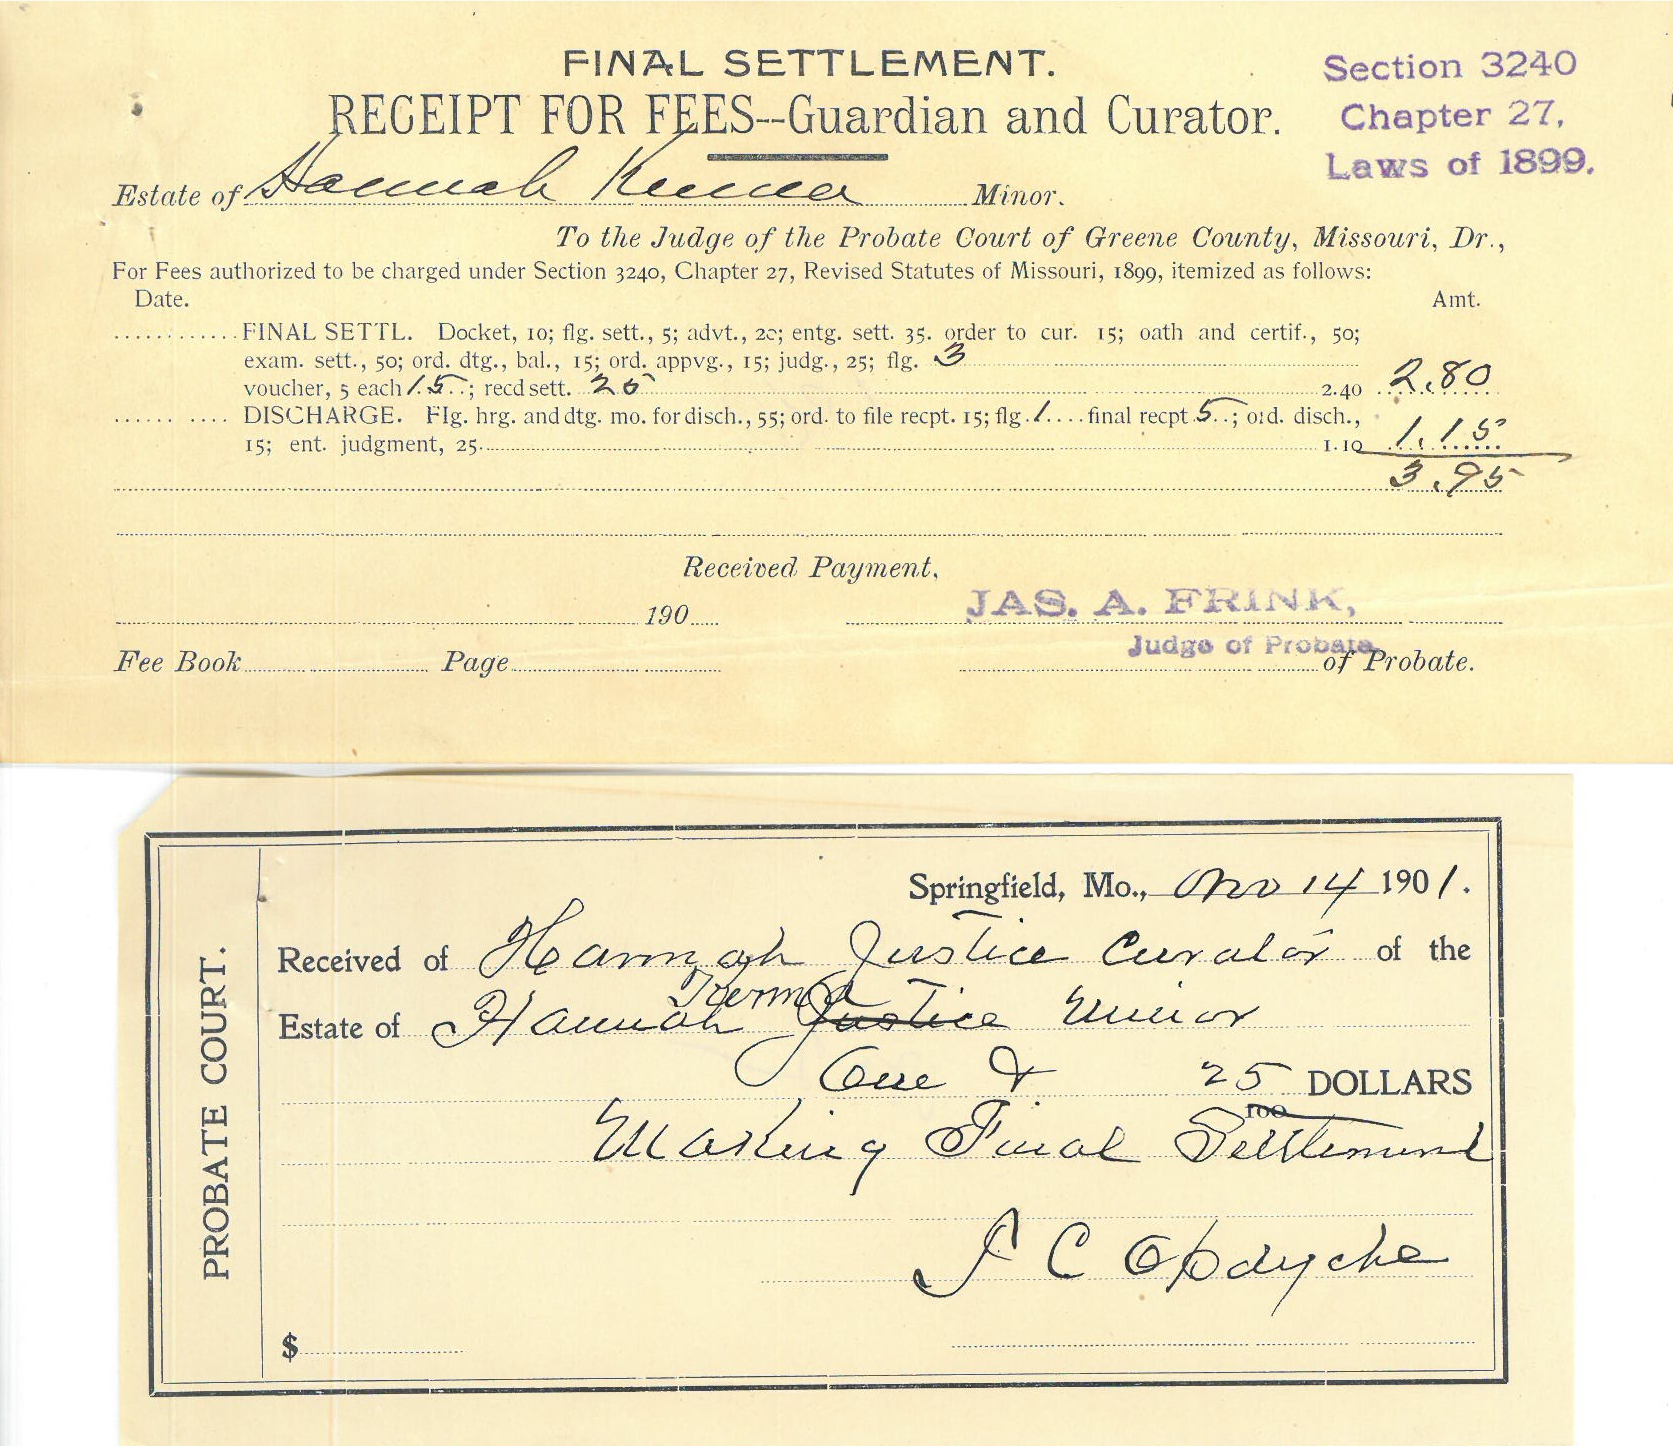 FINAL SETTLEMENT.
RECEIPT FOR FEES--Guardian and Curator.
Section 3240
Chapter 27,
Laws of 1899.
Estate of Hannah Kenna Minor.
To the Judge of the Probate Court of Greene County, Missouri, Dr.,
For Fees authorized to be charged under Section 3240, Chapter 27, Revised Statutes of Missouri, 1899, itemized as follows:
Date. Amt.
FINAL SETTL. Docket, 10; flg. sett., 5; advt., 20; entg. sett. 35. order to cur. 15; oath and certif., 50;
exam. sett., 50; ord. dtg., bal., 15; ord. appvg., 15; judg., 25; flg. 3
voucher, 5 each 15; recd sett. 25 2.40 2.80
DISCHARGE. Flg. hrg. and dtg. mo. for disch., 55; ord. to file recpt. 15; flg. 1 final recpt 5; ord. disch.,
15; ent. judgment, 25 1.10 1.15
3.95
Received Payment,
190
JAS. A. FRINK,
Judge of Probate
Fee Book Page of Probate.
PROBATE COURT.
Springfield, Mo., Nov 14 1901.
Received of Hannah Justice Curator of the
Kenna
Estate of Hannah Justice Minor
One & 25/100 DOLLARS
Making Final Settlement
J C Opdyche
$